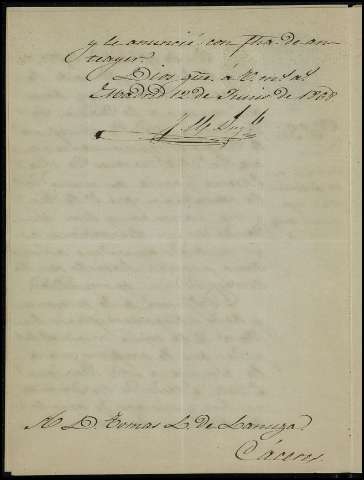 y le anuncié con fha. de an-
teayer.
Dios gue. á V. ms. as.
Madrid 12 de Junio de 1868
A D. Tomas L. de Lanuza.
Cáceres.